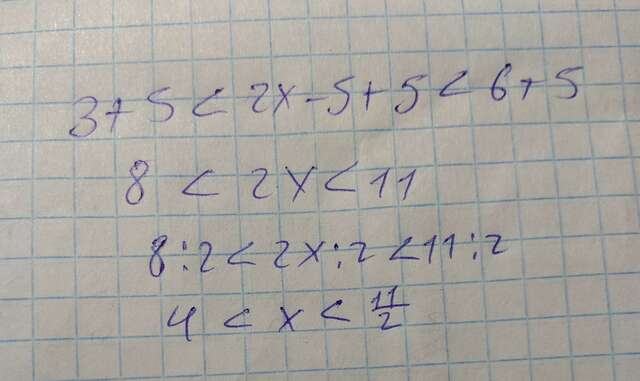 3+5<2x-5+5<6+5
8<2x<11
8:2<2x:2<11:2
4<x<11/2